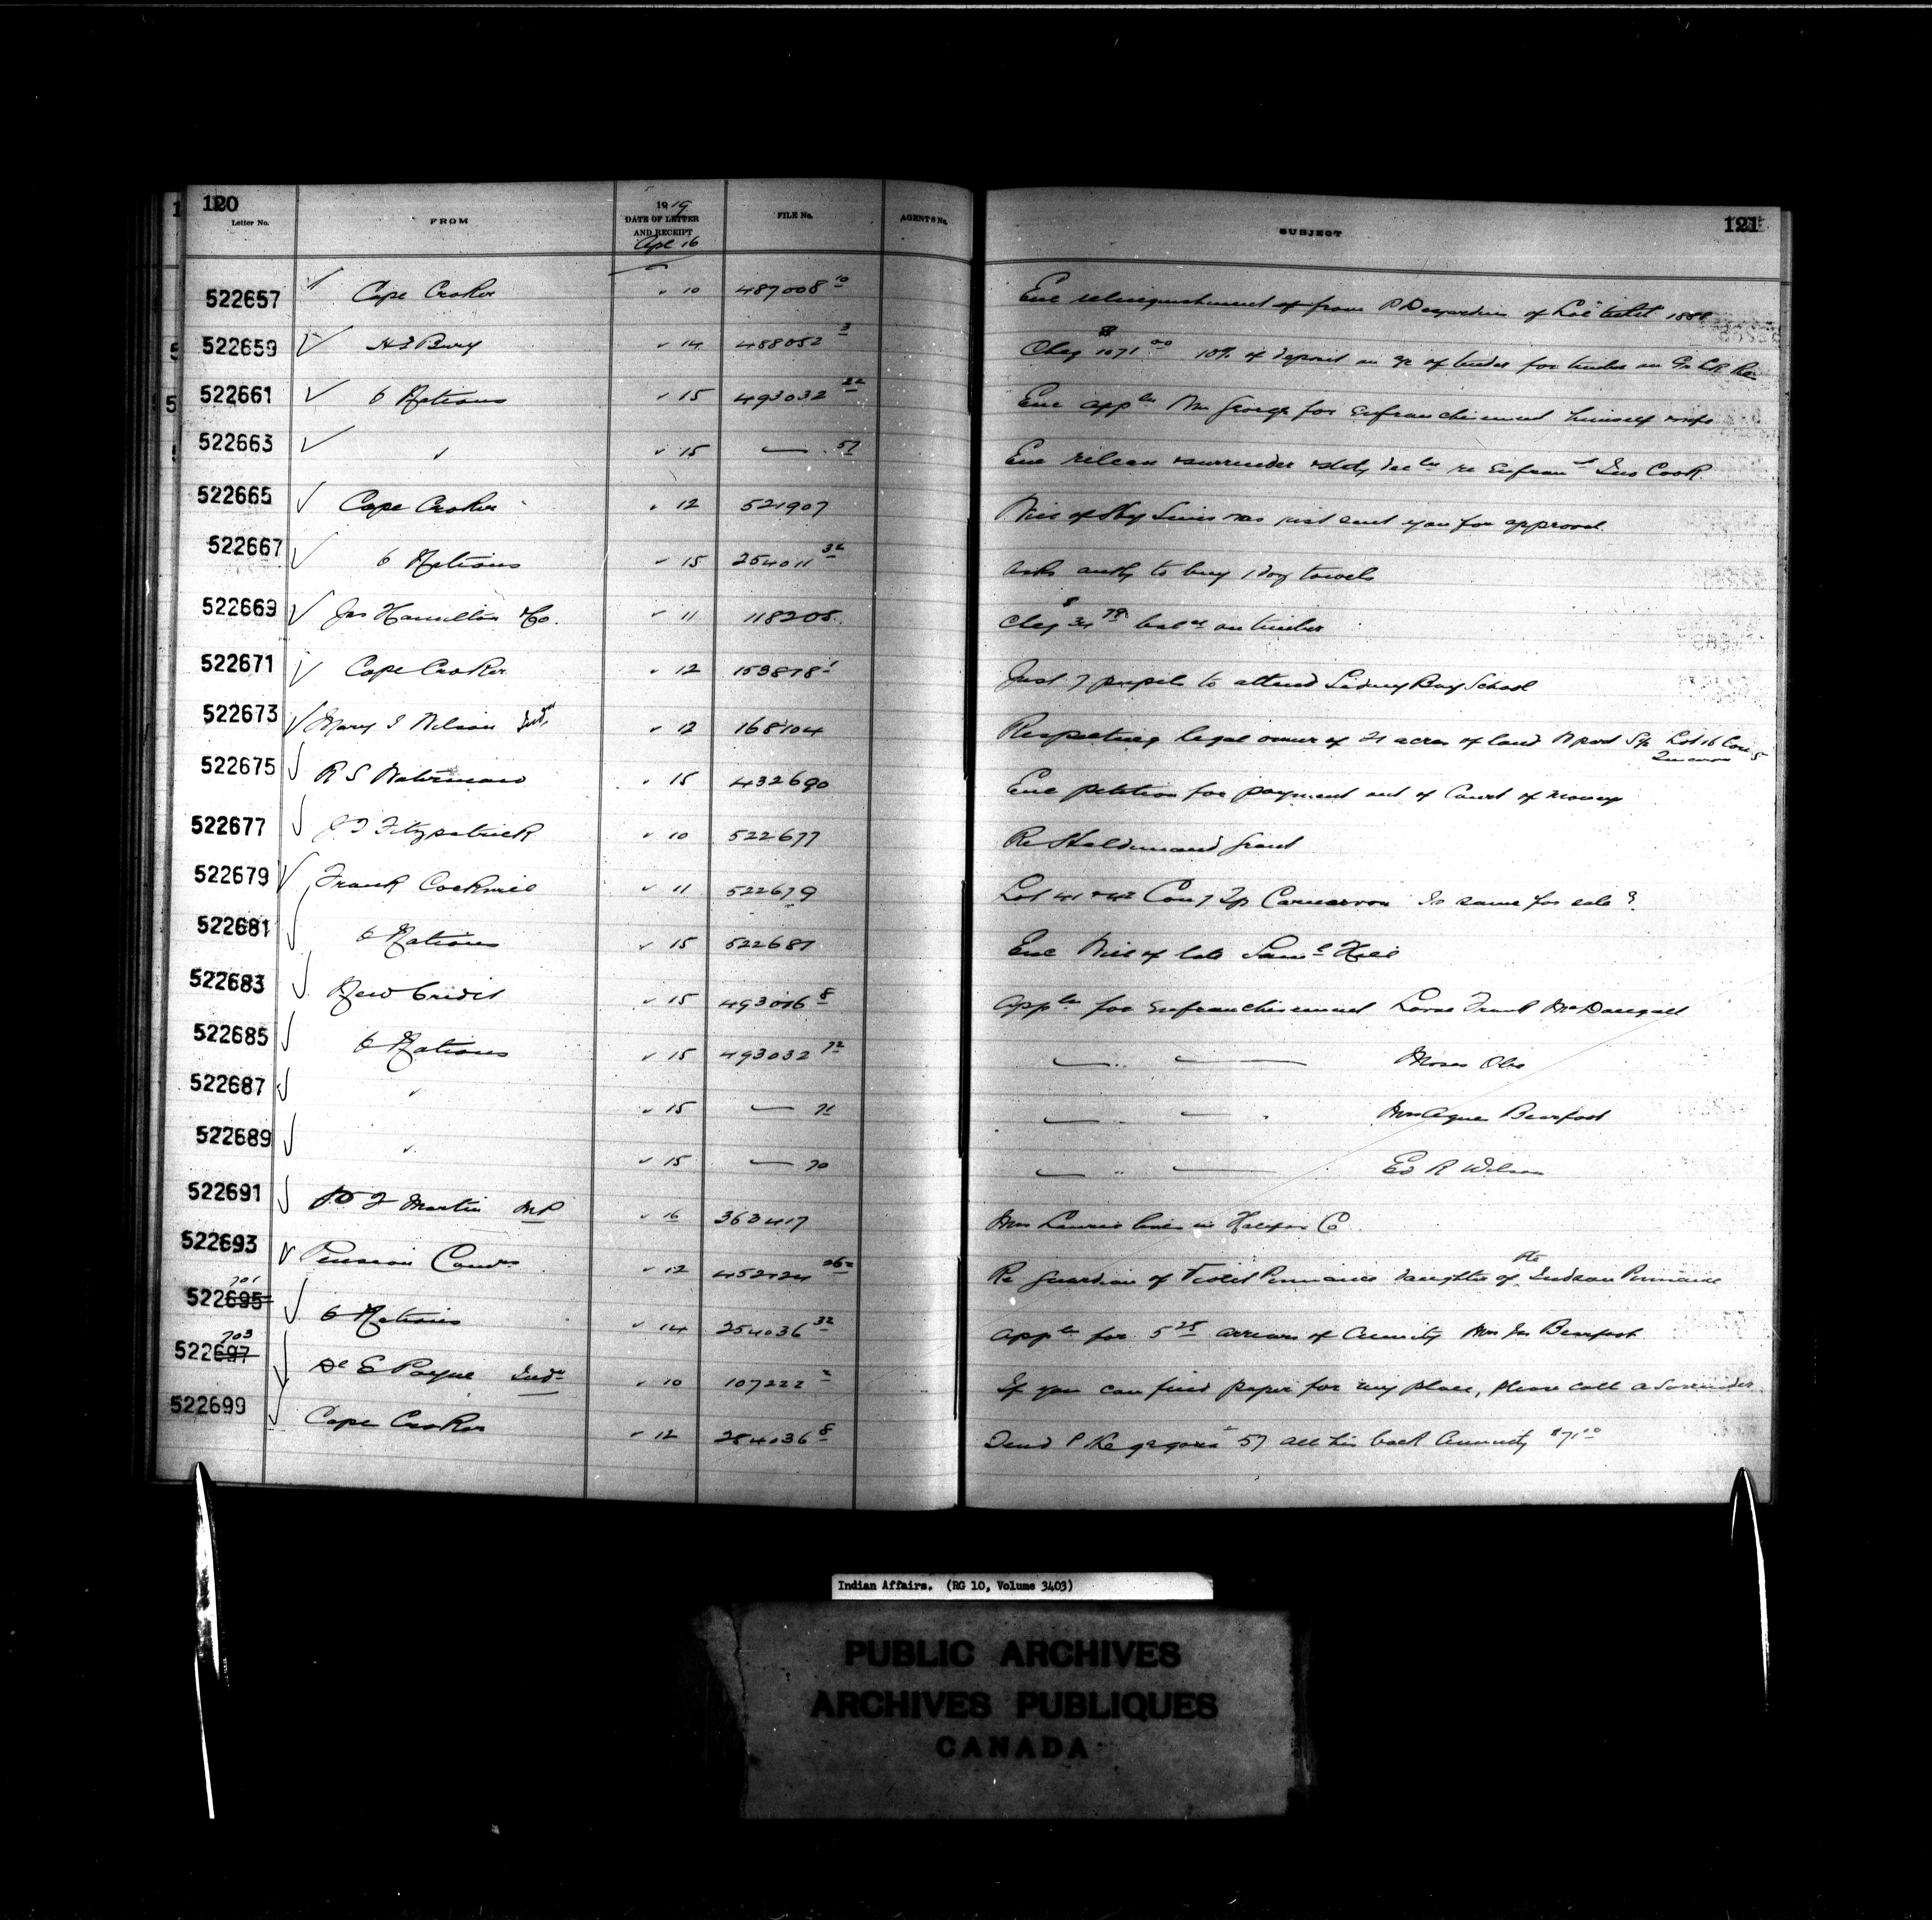 120
Letter No. FROM 1919 DATE OF LETTER AND RECEIPT FILE No. AGENTS No. SUBJECT 121
Apl 16
522657 Cape Croker " 10 487008 10 Enc relinquishment of from P Desjardins of Loc ticket 1888
522659 H J Bury " 14 488052 3 Cheq $1071 00 10% of deposit on a/c of tender for timber on
522661 6 Nations " 15 493032 Enc appln Wm George for enfranchisement himself wife
522663 " " 15 — 57 Enc release surrender re Enfran Cook
522665 Cape Croker " 12 521907 Will of was just sent you for approval
522667 6 Nations " 15 254011 32 asks auth to buy 1 doz towels
522669 Jas Hamilton & Co. " 11 118205 Cheq $34 78 balce on timber
522671 Cape Croker " 12 153878 1 Just 7 pupils to attend Sidney Bay School
522673 Mary J Nelson Indn " 12 168104 Respecting legal owner of 21 acres of land N part Lot 16 Con 5
522675 R S Waterman " 15 432690 Enc petition for payment out of Court of money
522677 J T Fitzpatrick " 10 522677 Re Haldimand Grant
522679 Frank Cockmill " 11 522679 Lot 41 & 42 Con 7 Tp Carnarvon Is same for sale?
522681 6 Nations " 15 522681 Enc Will of late Saml Hill
522683 New Credit " 15 493016 8 appln for enfranchisement Lorne Frank McDougall
522685 6 Nations " 15 493032 72 — " — Moses Obe
522687 " " 15 — 71 — — Mrs Bearfoot
522689 " " 15 — 70 — " — Ed R Wilson
522691 P F Martin MP " 16 363417 Mrs lives in Halifax Co
522693 Pension Comrs " 12 452124 Re Guardian of Violet Pinnance daughter of Pte Pinnance
522695 701 6 Nations " 14 254036 32 appln for 5 25 arrears of annuity Mrs Jas Bearfoot
522697 703 E Payne Indn " 10 107222 2 If you can find paper for my place, please call a Surrender
522699 Cape Croker " 12 254036 8 Send P 57 all his back annuity $71 10
Indian Affairs. (RG 10, Volume 3403)
PUBLIC ARCHIVES
ARCHIVES PUBLIQUES
CANADA